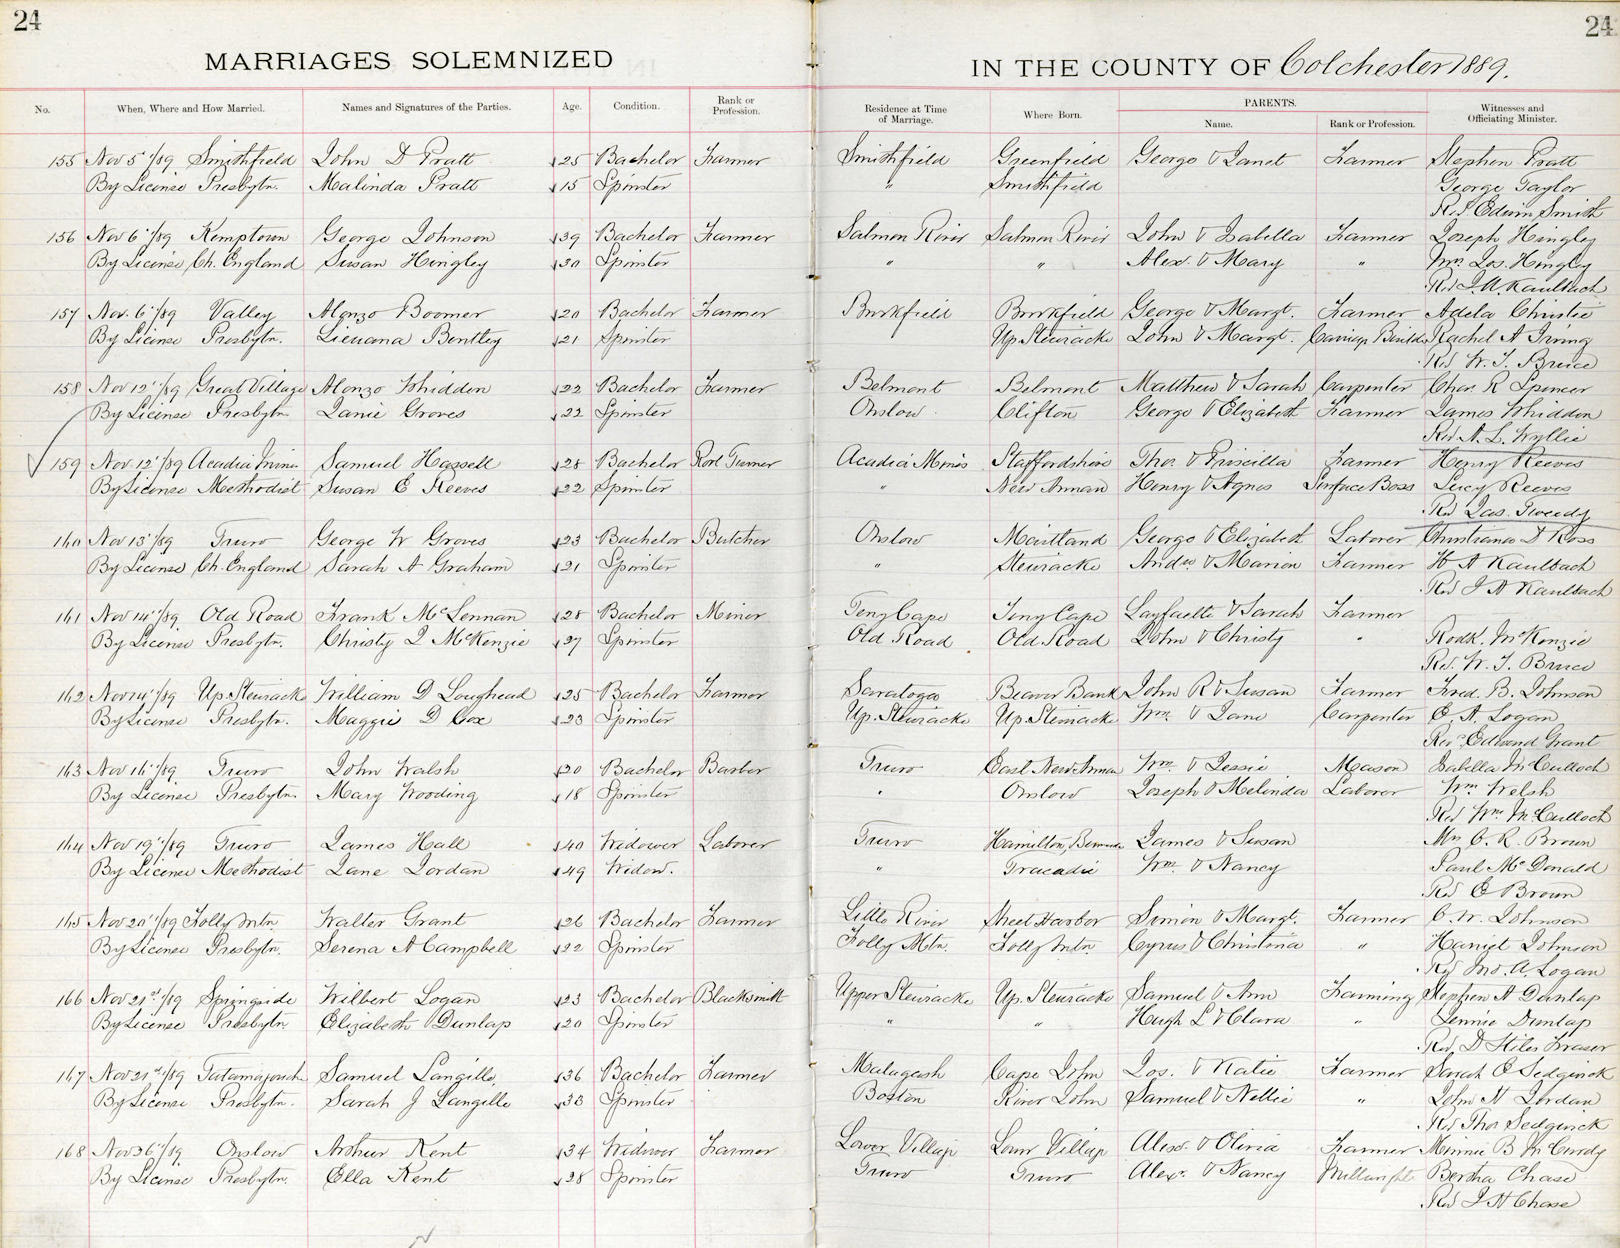 24 24
MARRIAGES SOLEMNIZED IN THE COUNTY OF Colchester 1889.
No. When, Where and How Married. Names and Signatures of the Parties. Age. Condition. Rank or Profession. Residence at Time of Marriage. Where Born. PARENTS. Name. Rank or Profession. Witnesses and Officiating Minister.
155 Nov 5"/89 Smithfield John D Pratt 25 Bachelor Farmer Smithfield Greenfield George & Janet Farmer Stephen Pratt
By License Presbytn. Malinda Pratt 15 Spinster " Smithfield George Taylor
Revd Edwin Smith
156 Nov 6"/89 Kemptown George Johnson 39 Bachelor Farmer Salmon River Salmon River John & Isabella Farmer Joseph Hingley
By License Ch. England Susan Hingley 30 Spinster " " Alexr & Mary " Mrs Jos. Hingley
Rev J. A. Kaulbach
157 Nov. 6"/89 Valley Alonzo Boomer 20 Bachelor Farmer Brookfield Brookfield George & Margt. Farmer Adela Christie
By License Presbytn. Lieuana Bentley 21 Spinster Up. Stewiacke John & Margt. Carriage Builder Rachel A Irving
Rev W. T. Bruce
158 Nov 12"/89 Great Village Alonzo Whidden 22 Bachelor Farmer Belmont Belmont Matthew & Sarah Carpenter Chas. R Spencer
By License Presbytn Janie Groves 22 Spinster Onslow Clifton George & Elizabeth Farmer James Whidden
Rev A. L. Wyllie
159 Nov 12"/89 Acadia Mines Samuel Hassell 28 Bachelor Acadia Mines Staffordshire Thos. & Priscilla Farmer Henry Reeves
By License Methodist Susan E Reeves 22 Spinster " New Annan Henry & Agnes Surface Boss Lucy Reeves
Rev Jas. Tweedy
160 Nov 13"/89 Truro George W Groves 23 Bachelor Butcher Onslow Maitland George & Elizabeth Laborer Christiana D Ross
By License Ch. England Sarah A Graham 21 Spinster " Stewiacke Andw & Marion Farmer H A Kaulbach
Rev J A Kaulbach
161 Nov 14"/89. Old Road Frank McLennan 28 Bachelor Miner Teny Cape Teny Cape Layfaette & Sarah Farmer
By License Presbytn. Christy J McKenzie 27 Spinster Old Road Old Road John & Christy " Rodk. McKenzie
Rev. W. T. Bruce
162 Nov 14"/89 Up. Stewiacke William D Loughead 25 Bachelor Farmer Saratoga Beaver Bank John R & Susan Farmer Fred. B. Johnson
By License Presbytn. Maggie D Cox 23 Spinster Up. Stewiacke Up. Stewiacke Wm. & Jane Carpenter E. A. Logan
Rev. Edward Grant
163 Nov 16"/89. Truro John Walsh 30 Bachelor Barber Truro East New Annan Wm. & Jessie Mason Isabella McCulloch
By License Presbytn Mary Wooding 18 Spinster " Onslow Joseph & Melinda Laborer Wm Welsh
Rev Wm. McCulloch
164 Nov 19"/89 Truro James Hall 40 Widower Laborer Truro Hamilton, Bermuda James & Susan Mrs C. R. Brown
By License Methodist Jane Jordan 49 Widow. " Tracadie Wm. & Nancy Paul McDonald
Rev E Brown
165 Nov 20"/89 Folly Mtn. Walter Grant 26 Bachelor Farmer Little River Sheet Harbor Simon & Margt. Farmer C. W. Johnson
By License Presbytn. Serena A Campbell 22 Spinster Folly Mtn. Folly Mtn. Cyrus & Christina " Harriet Johnson
Rev Jno. A. Logan
166 Nov 21st/89 Springside Wilbert Logan 23 Bachelor Blacksmith Upper Stewiacke Up. Stewiacke Samuel & Ann Farming Stephen A Dunlap
By License Presbytn Elizabeth Dunlap 20 Spinster " " Hugh L & Clara " Jennie Dunlap
Rev. D Stiles Fraser
167 Nov 21st/89 Tatamagouche Samuel Langille, 36 Bachelor Farmer Malagash Cape John Jos. & Katie Farmer Sarah E Sedgwick
By License Presbytn. Sarah J Langille 33 Spinster Boston River John Samuel & Nellie " John H Jordan
Rev Thos Sedgwick
168 Nov 26"/89. Onslow Arthur Kent 34 Widower Farmer Lower Village Lower Village Alexr. & Olivia Farmer Minnie B McCurdy
By License Presbytn. Ella Kent 28 Spinster Truro Truro Alexr. & Nancy Millwright Bertha Chase
Rev J H Chase